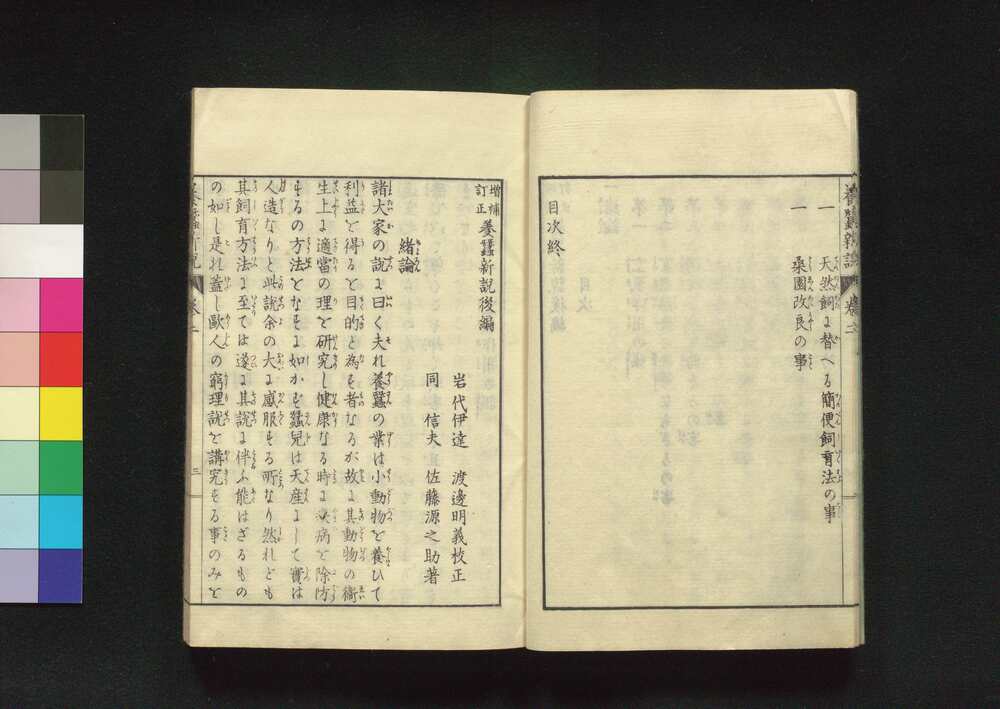 一　天然飼ニ替へる簡便飼育法の事
一　桒園改良の事
目次終
増補訂正　養蠶新説後編
岩代伊達　渡邊明義校正
同　信夫　佐藤源之助著
緒論
諸大家の説に曰く夫れ養蠶の業は小動物を養ひて
利益を得るを目的と為す者なるが故に其動物の衛
生上に適當の理を研究し健康なる時に疾病を除防
するの方法となすに如かず蠶兒は天産にして實は
人造なりと此説余の大に感服する所なり然れども
其飼育方法に至ては遂に其説に伴ふ能はざるもの
の如し是れ蓋し歐人の窮理説を講究する事のみを
三